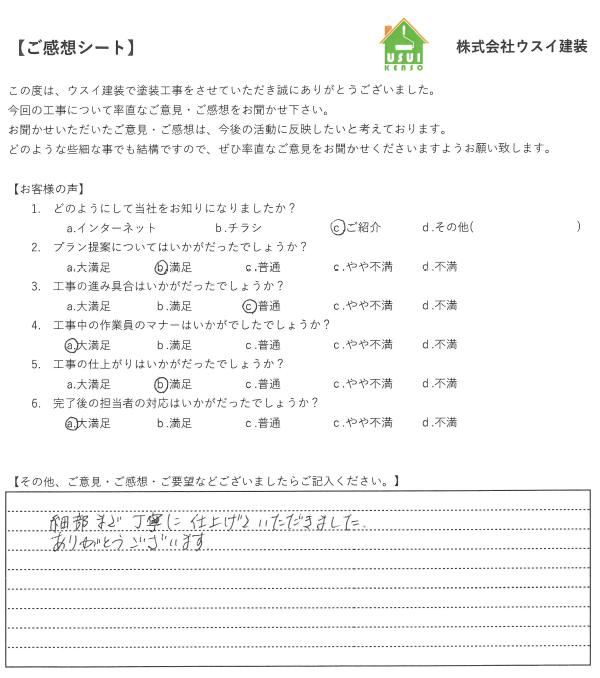 【ご感想シート】
USUI
KENSO
株式会社ウスイ建装
この度は、ウスイ建装で塗装工事をさせていただき誠にありがとうございました。
今回の工事について率直なご意見・ご感想をお聞かせ下さい。
お聞かせいただいたご意見・ご感想は、今後の活動に反映したいと考えております。
どのような些細な事でも結構ですので、ぜひ率直なご意見をお聞かせくださいますようお願い致します。
【お客様の声】
1. どのようにして当社をお知りになりましたか？
a.インターネット b.チラシ c.ご紹介 d.その他( )
2. プラン提案についてはいかがだったでしょうか？
a.大満足 b.満足 c.普通 c.やや不満 d.不満
3. 工事の進み具合はいかがだったでしょうか？
a.大満足 b.満足 c.普通 c.やや不満 d.不満
4. 工事中の作業員のマナーはいかがでしたでしょうか？
a.大満足 b.満足 c.普通 c.やや不満 d.不満
5. 工事の仕上がりはいかがだったでしょうか？
a.大満足 b.満足 c.普通 c.やや不満 d.不満
6. 完了後の担当者の対応はいかがだったでしょうか？
a.大満足 b.満足 c.普通 c.やや不満 d.不満
【その他、ご意見・ご感想・ご要望などございましたらご記入ください。】
細部まで丁寧に仕上げていただきました。
ありがとうございます